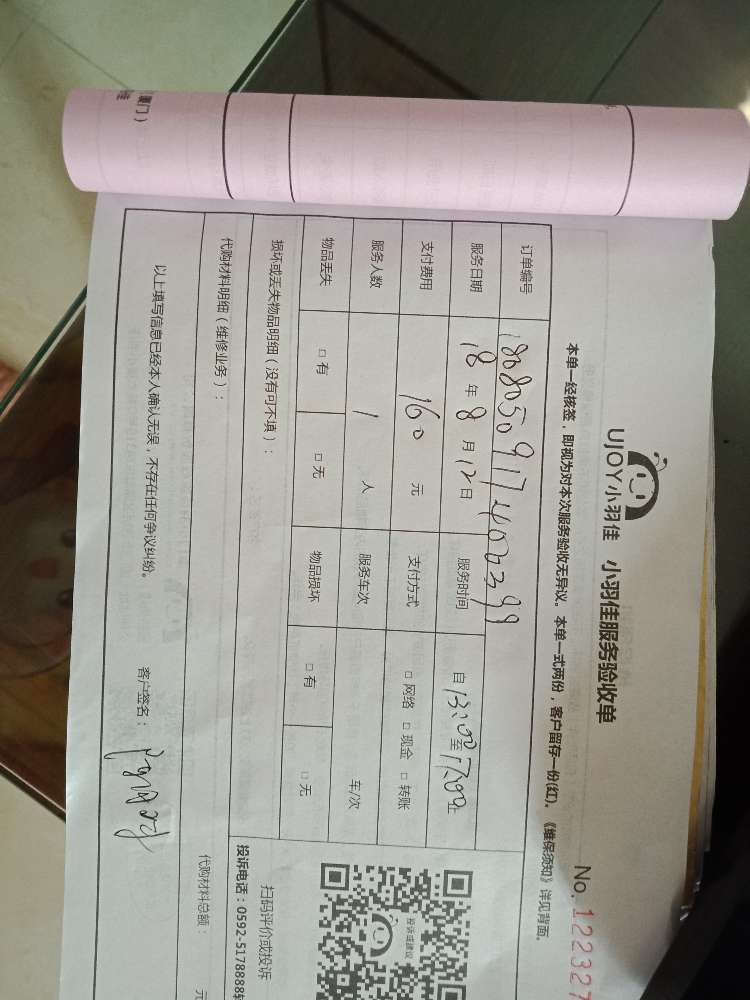 UJOY小羽佳 小羽佳服务验收单
No. 122327
本单一经核签，即视为对本次服务验收无异议。本单一式两份，客户留存一份(红)。《维保须知》详见背面。
订单编号 1808050917400399
服务日期 18年8月12日 服务时间 自13:00至17:00止
支付费用 160元 支付方式 □网络 □现金 □转账
服务人数 1人 服务车次 车/次
物品丢失 □有 □无 物品损坏 □有 □无
损坏或丢失物品明细（没有可不填）：
投诉或建议
扫码评价或投诉
投诉电话：0592-5178888转
代购材料明细（维修业务）：
代购材料总额： 元
以上填写信息已经本人确认无误，不存在任何争议纠纷。
客户签名：
厦门）